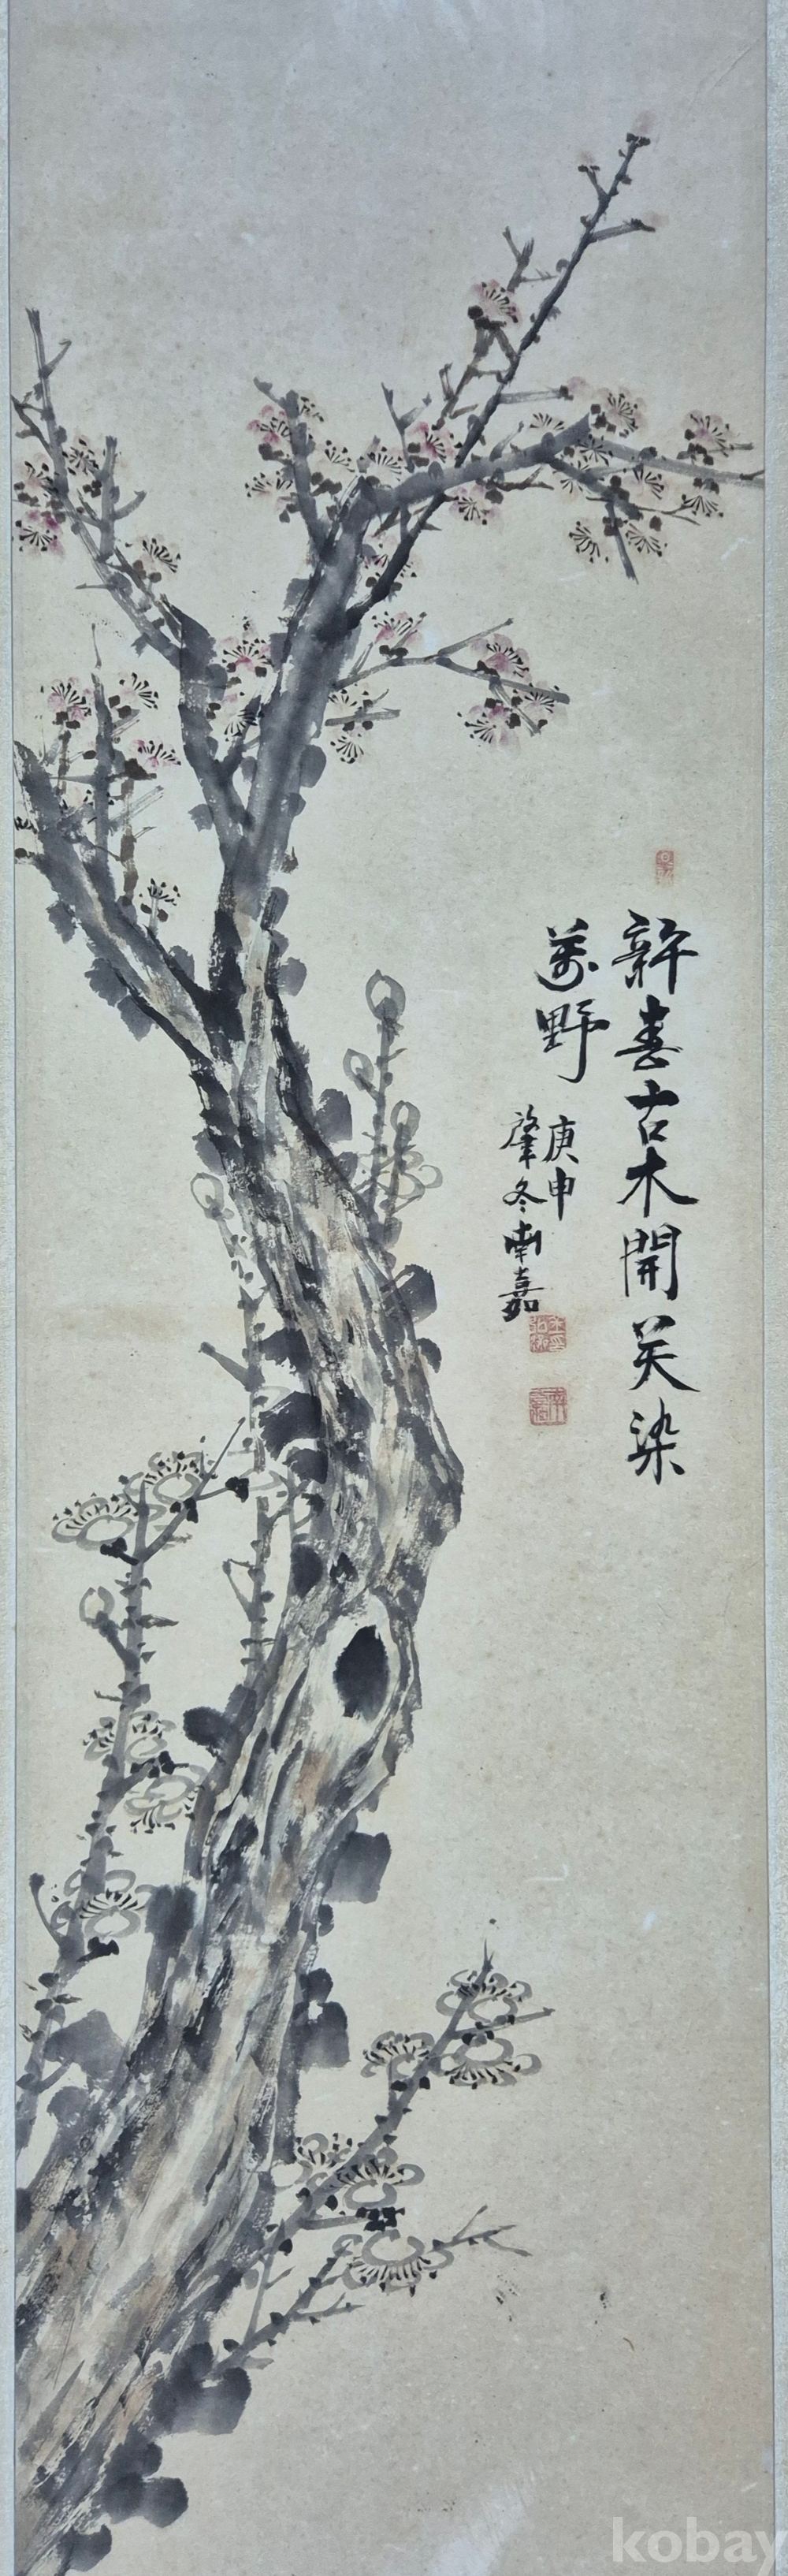 許喜古木開笑染
萬野
庚申
肇冬南嘉
kobay